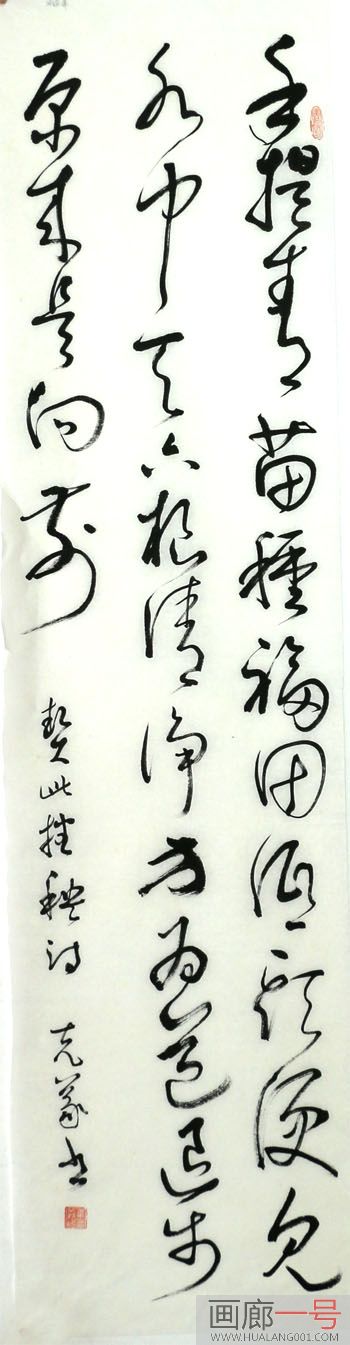 手提青苗種福田低頭便見
水中天六根清淨方為道退步
原來是向前
契此插秧詩 克 书
画廊一号
WWW.HUALANG001.COM